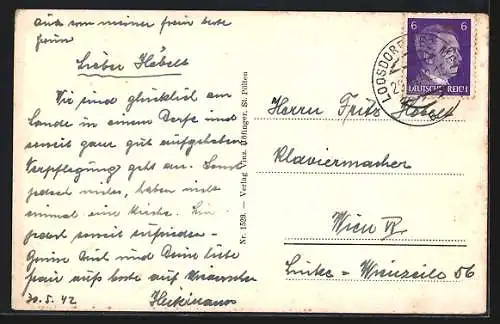 Auch von meiner Frau beste
Grüße
Lieber Höbelt
Wir sind glücklich am
Lande in einem Dorfe und
soweit ganz gut aufgehoben
Verpflegung geht an. Sonst
nicht
einmal eine Kirche. Sind
soweit zufrieden –
Grüße Dich und Deine liebe
Frau aufs beste auf Wiedersehen
30.5.42
Nr. 1529. – Verlag Vinz. Höfinger, St. Pölten
6 6
DEUTSCHES REICH
LOOSDORF
Herrn Fritz Höbelt
Klaviermacher
Wien VI
Linke – Wienzeile 56